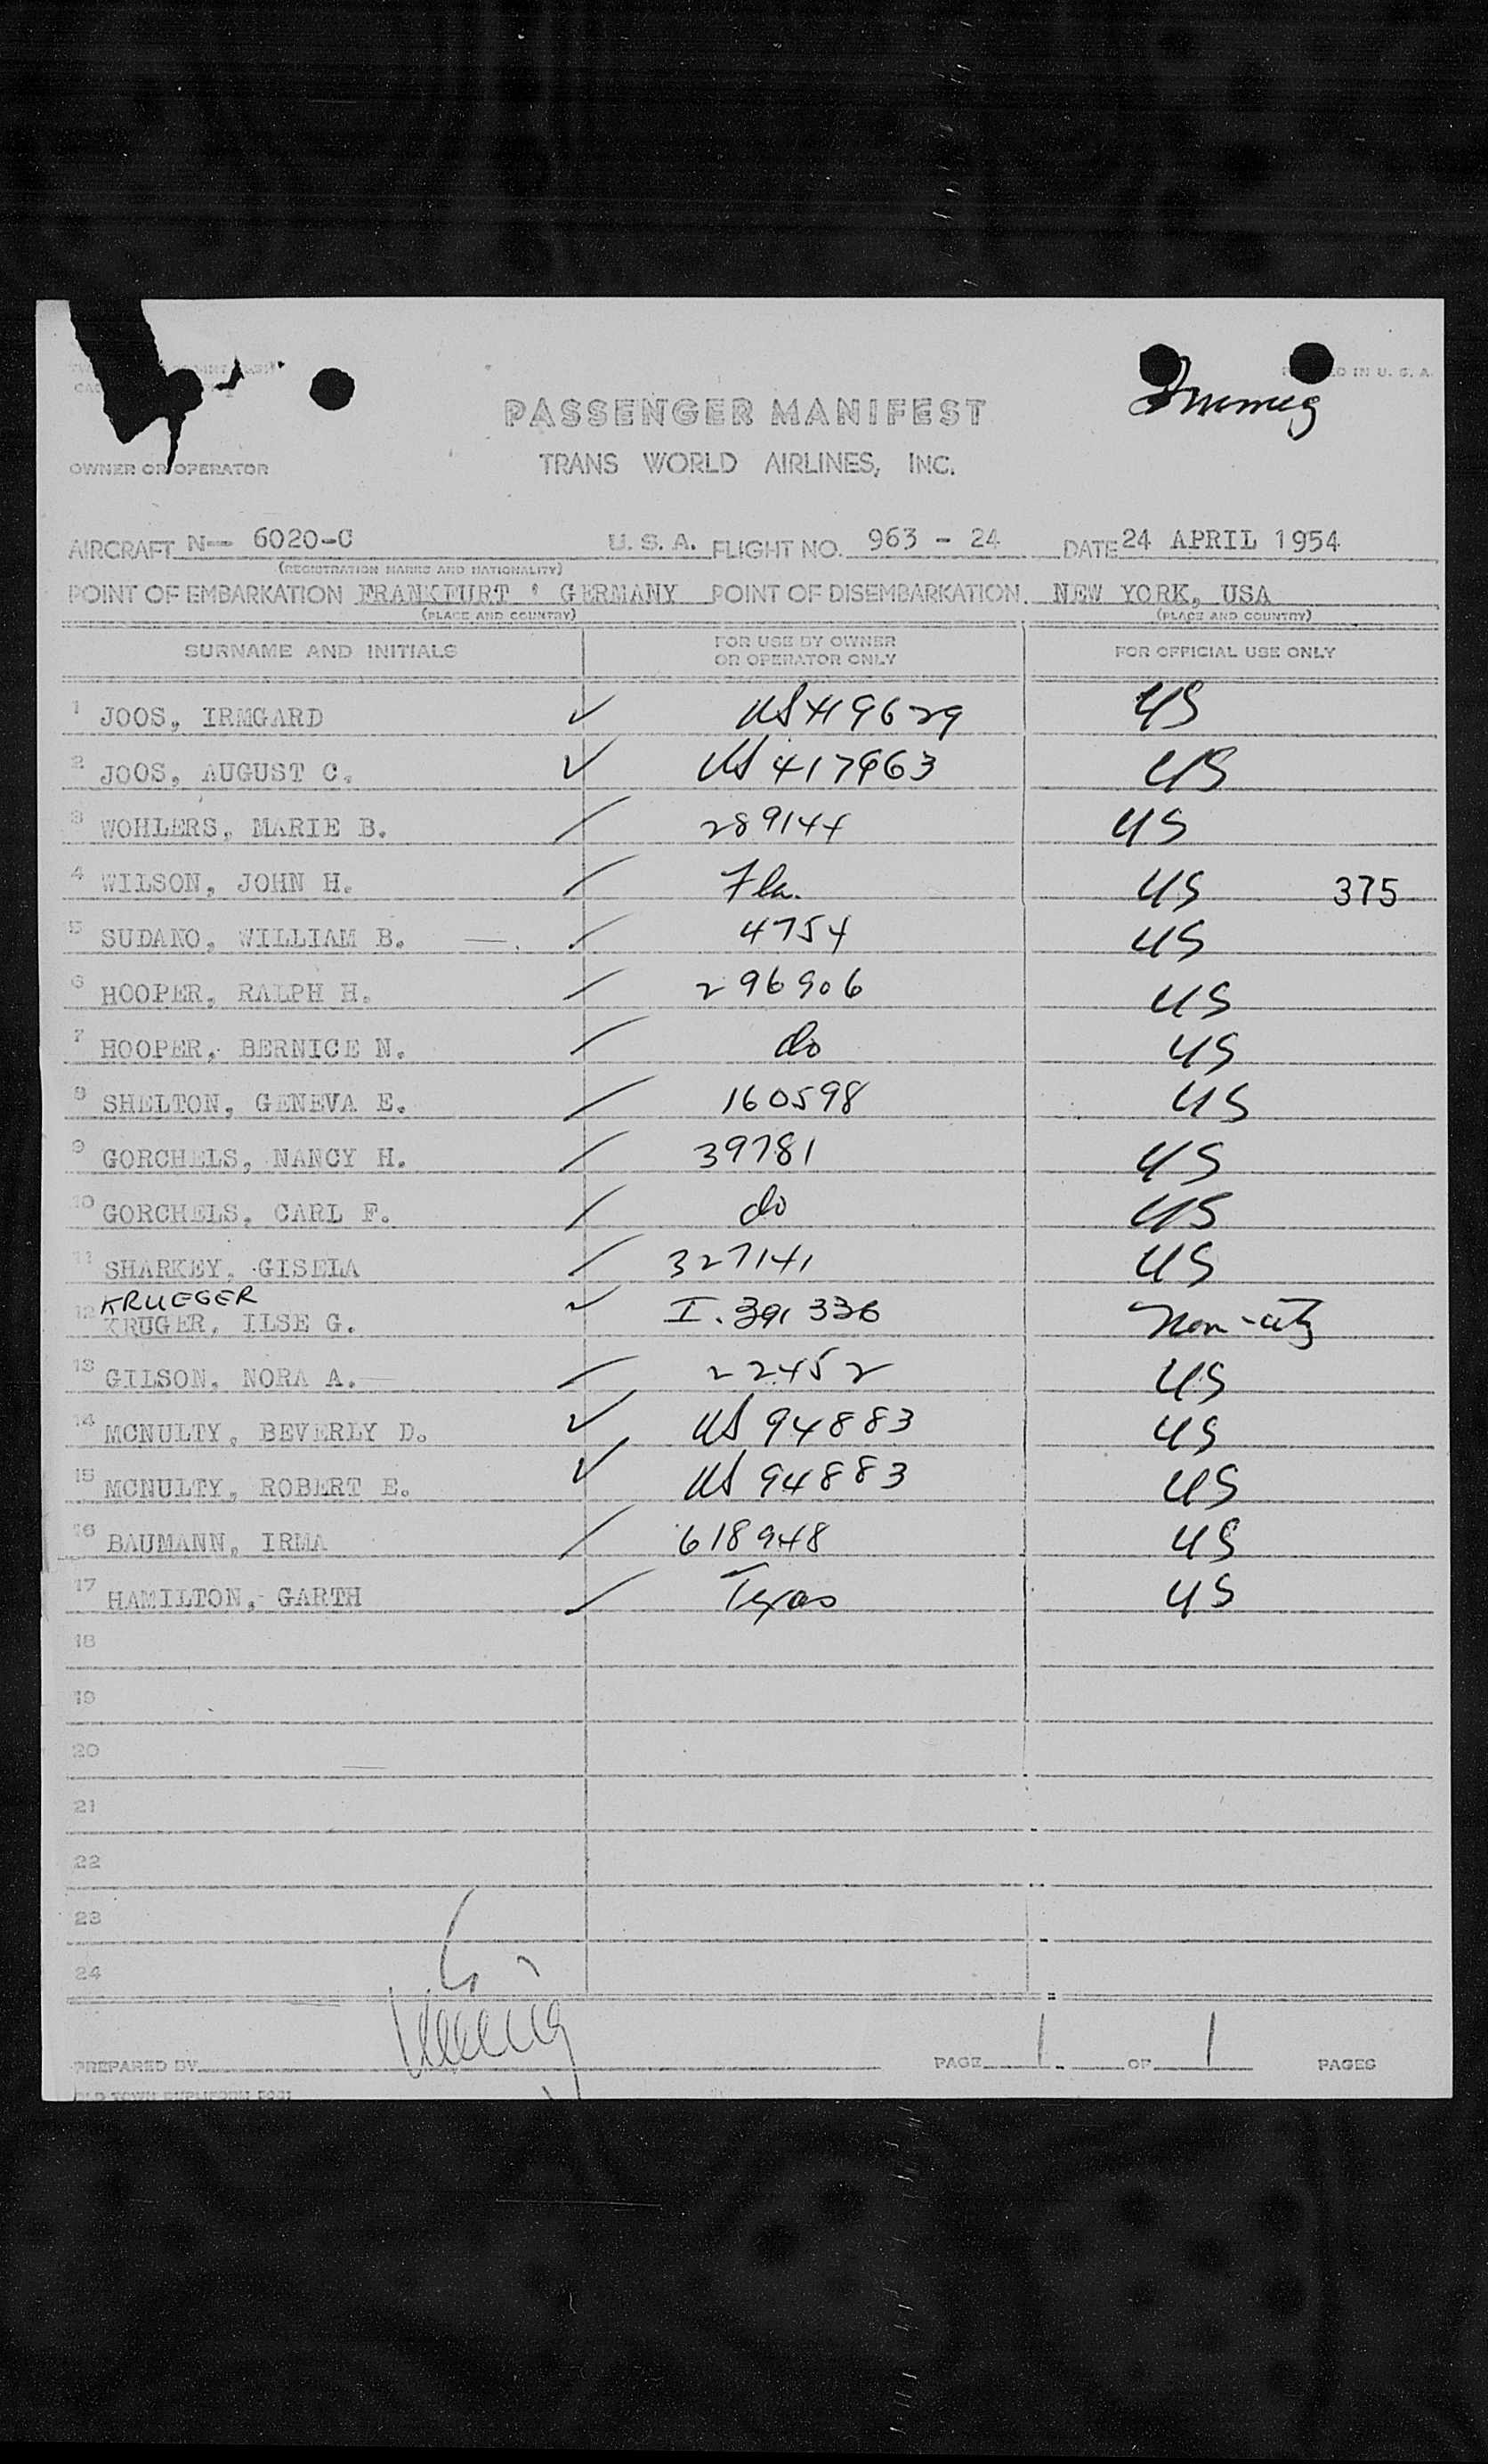 PRINTED IN U. S. A.
Immig
PASSENGER MANIFEST
OWNER OR OPERATOR TRANS WORLD AIRLINES, INC.
AIRCRAFT N— 6020-C U. S. A. FLIGHT NO. 963 - 24 DATE 24 APRIL 1954
(REGISTRATION MARKS AND NATIONALITY)
POINT OF EMBARKATION FRANKFURT ' GERMANY POINT OF DISEMBARKATION. NEW YORK, USA
(PLACE AND COUNTRY) (PLACE AND COUNTRY)
SURNAME AND INITIALS FOR USE BY OWNER OR OPERATOR ONLY FOR OFFICIAL USE ONLY
1 JOOS, IRMGARD ✓ US 419629 US
2 JOOS, AUGUST C. ✓ US 417963 US
3 WOHLERS, MARIE B. / 289144 US
4 WILSON, JOHN H. / Fla. US 375
5 SUDANO, WILLIAM B. / 4754 US
6 HOOPER, RALPH H. / 296906 US
7 HOOPER, BERNICE N. / do US
8 SHELTON, GENEVA E. / 160598 US
9 GORCHELS, NANCY H. / 39781 US
10 GORCHELS, CARL F. / do US
11 SHARKEY, GISELA / 327141 US
KRUEGER
12 KRUGER, ILSE G. ✓ I. 391 336 Non-citz
13 GILSON, NORA A. / 22452 US
14 MCNULTY, BEVERLY D. ✓ US 94883 US
15 MCNULTY, ROBERT E. ✓ US 94883 US
16 BAUMANN, IRMA / 618948 US
17 HAMILTON, GARTH / Texas US
18
19
20
21
22
23
24
PREPARED BY PAGE 1 OF 1 PAGES
OLD TOWN DUPLIFORM